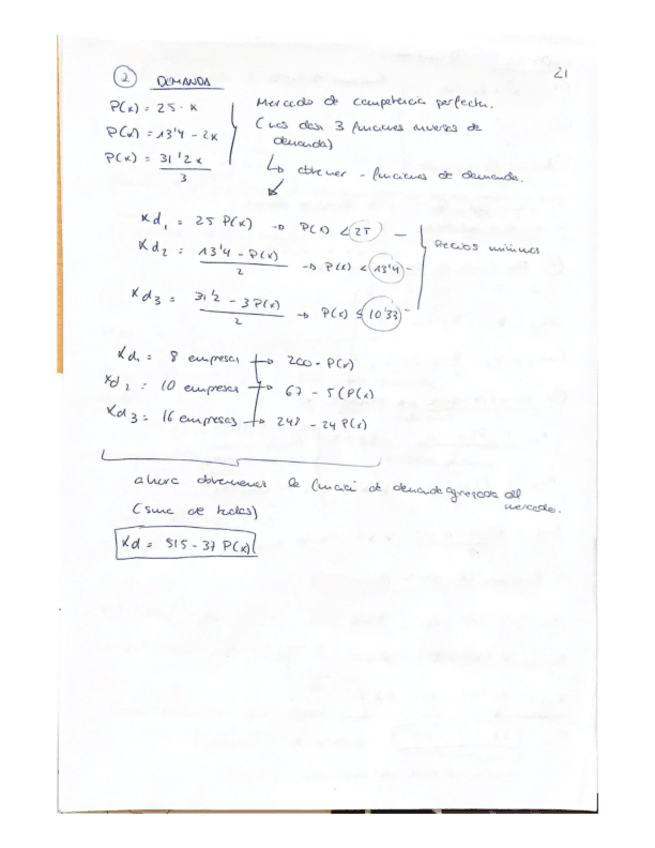 21
2 DEMANDA
P(x) = 25 - x
P(x) = 13'4 - 2x
P(x) = 31'2x / 3
Mercado de competencia perfecta.
(nos dan 3 funciones inversas de
demanda)
↳ obtener - funciones de demanda.
Xd1 = 25 P(x) → P(x) < 25 —
Xd2 = 13'4 - P(x) / 2 → P(x) < 13'4 -
Xd3 = 31'2 - 3P(x) / 2 → P(x) ≤ 10'33 -
Precios mínimos
Xd1 = 8 empresas → 200 - P(x)
Xd2 = 10 empresas → 67 - 5(P(x)
Xd3 = 16 empresas → 248 - 24 P(x)
ahora obtenemos la función de demanda agregada del
mercado.
(suma de todas)
Xd = 515 - 37 P(x)